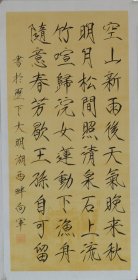 空山新雨後天氣晚来秋
明月松間照清泉石上流
竹喧歸浣女蓮動下漁舟
隨意春芳歇王孫自可留
書於歷下大明湖西畔向軍